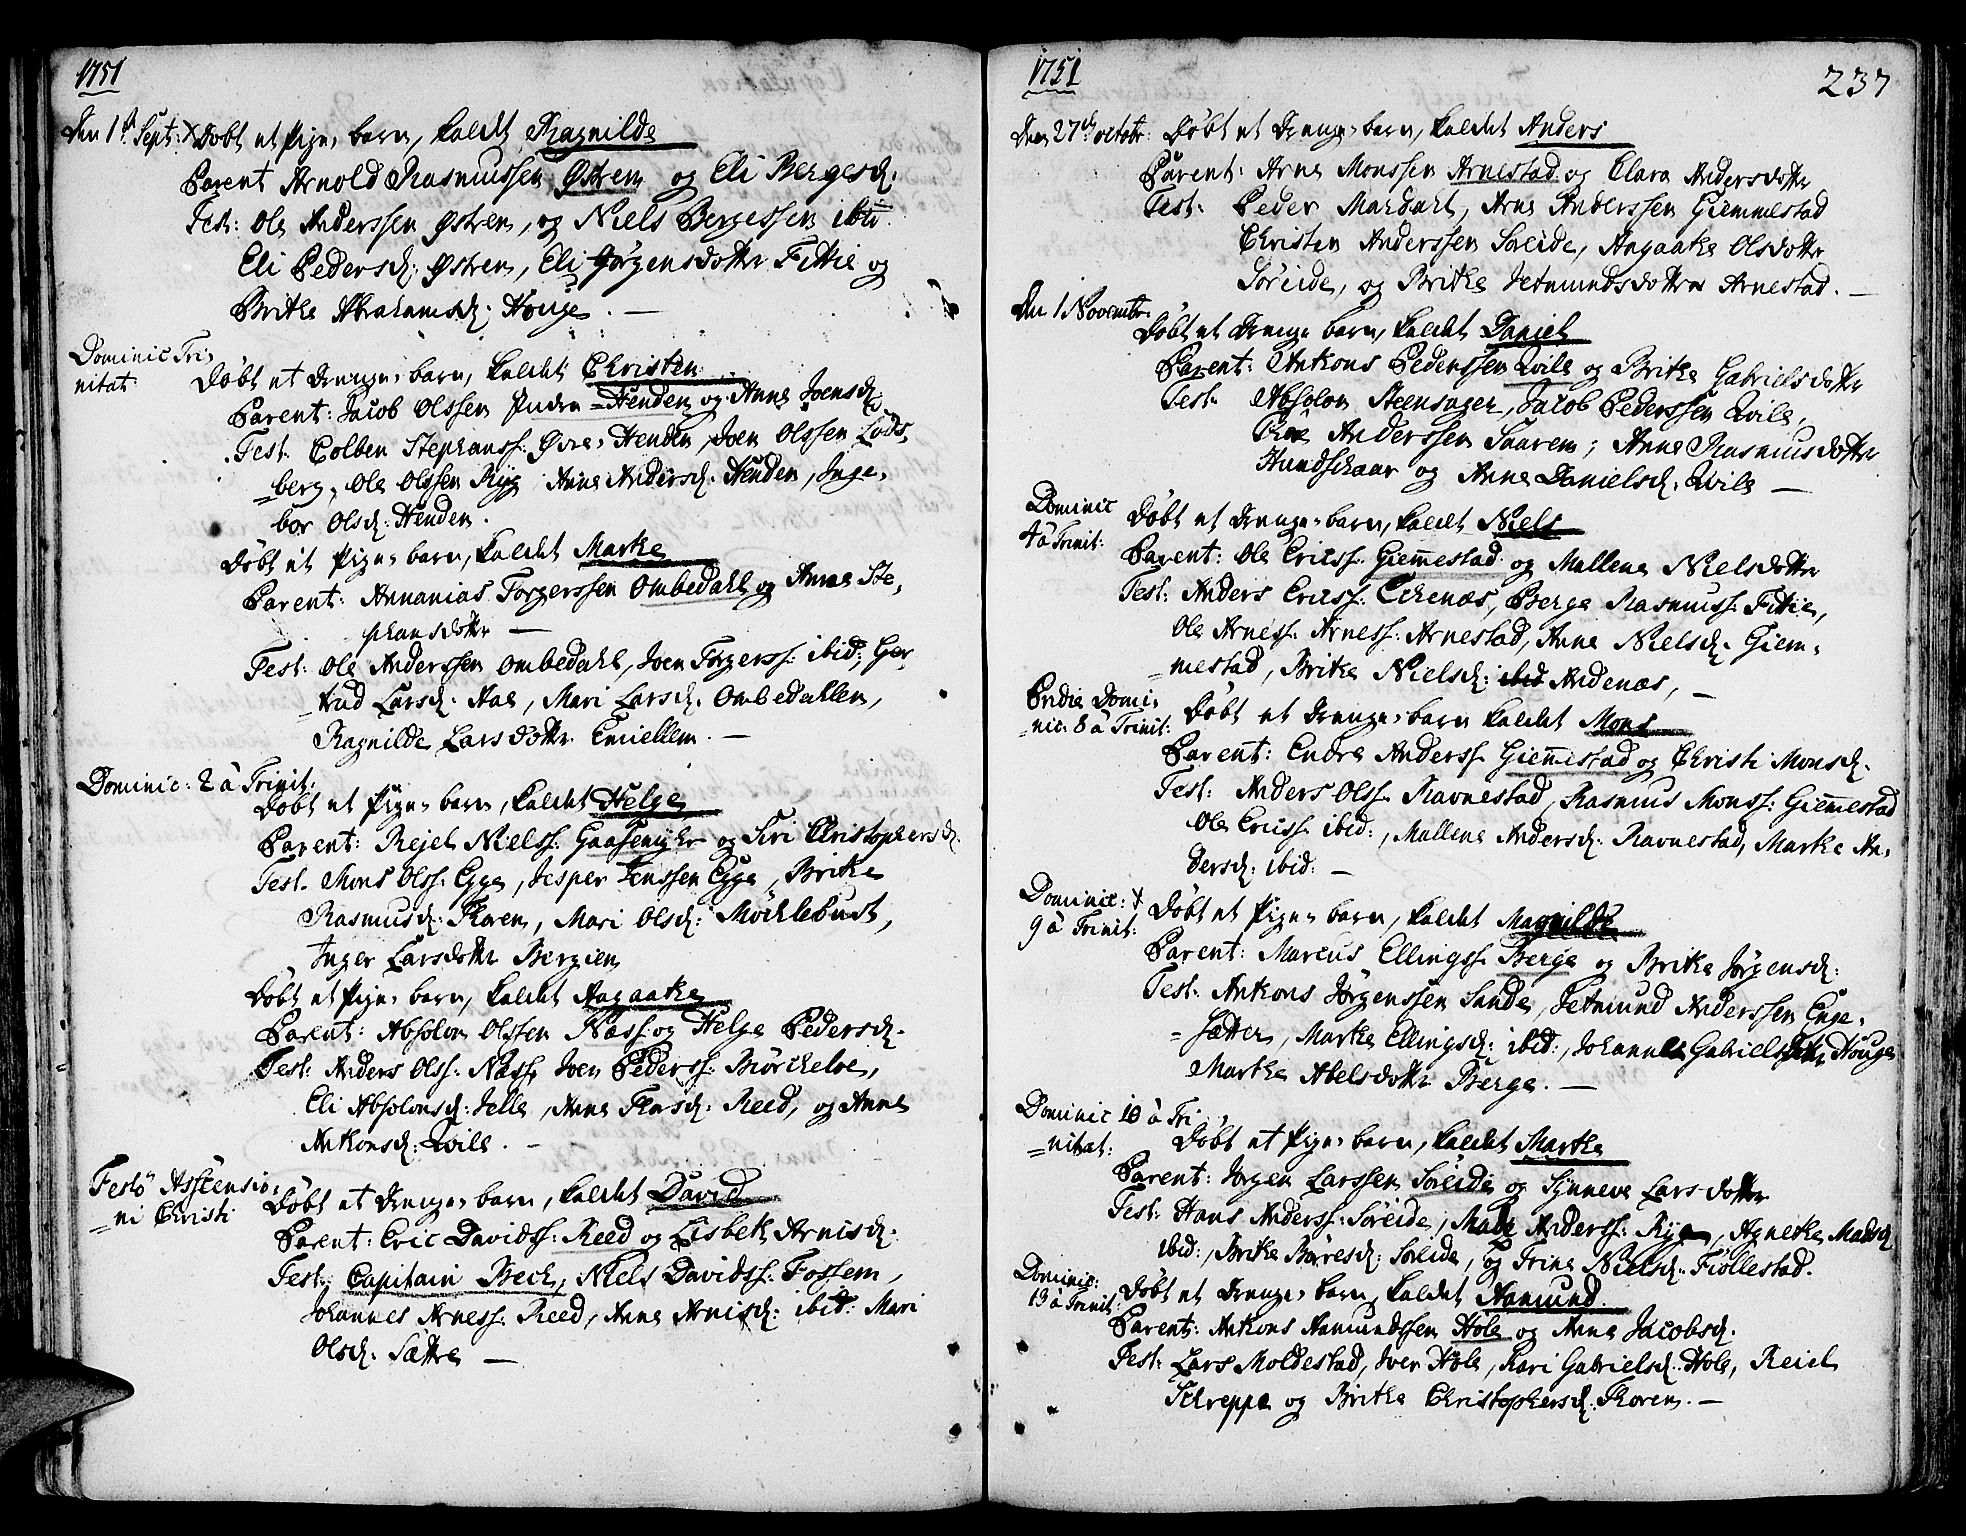 1751
Den 1ste Sept: X Døbt et Pige-barn, kaldet Ragnilde
Parent Arnold Rasmussen Østrem og Eli Bergesd.
Test: Ole Anderssen Østrem, og Niels Bergessen ibid.
Eli Pedersd: Østrem, Eli Jørgensdotter Fittie og
Brithe Abrahamsd: Houge. —
Dominic Tri-
nitat: Døbt et Drenge-barn, kaldet Christen
Parent: Jacob Olssen Indre-Henden og Anne Joensd.
Test. Colben Stephanss: Øvre-Henden, Joen Olssen Lods-
berg, Ole Olssen Ryg, Anne Andersd. Henden, Inge-
bor Olsd: Henden.
Døbt et Pige-barn, kaldet Marthe
Parent: Annanias Torgerssen Ombedahl og Anne Ste-
phansdotter —
Test: Ole Anderssen Ombedahl, Joen Torgerss: ibid:, Ger-
trud Larsd: Aae, Mari Larsd. Ombedahlen,
Ragnilde Larsdotter Emiellem. —
Dominic: 2 à Trinit:
Døbt et Pige-barn, kaldet Helge
Parent: Rejel Nielss: Gaasemyhr og Siri Christophersd.
Test. Mons Olss: Egge, Jesper Jenssen Egge, Brithe
Rasmusd: Floren, Mari Olsd: Möchlebust,
Inger Larsdotter Bergien
Døbt et Pige-barn, kaldet Aagaathe
Parent: Absolon Olssen Næss og Helge Pedersd.
Test: Anders Olss: Næss, Joen Pederss: Biörcheloe,
Eli Absolonsd: Jelle, Anne Flasd: Reed, og Anne
Ankonsd: Qvile. —
Festo Asscensio-
ni Christi Døbt et Drenge-barn, kaldet David
Parent: Eric Davidss: Reed og Lisbeth Arnisd.
Test: Capitain Bech, Niels Davidss: Fossem,
Johannes Arness: Reed, Anne Arnisd: ibid: Mari
Olsd. Sættre —
1751 237
Den 27de octobr: Døbt et Drenge-barn, kaldet Anders
Parent: Arne Monssen Arnestad og Clara Andersdotter
Test: Peder Mardahl, Arne Anderssen Giemmestad
Christen Anderssen Søreide, Aagaathe Olsdotter
Søreide, og Brithe Jetmundsdotter Arnestad. —
Den 1 Novembr:
Døbt et Drenge barn, kaldet Daniel
Parent: Ankons Pederssen Qvile og Brithe Gabrielsdotter
Test. Absolon Steensager, Jacob Pederssen Qvile,
Anderssen Saarem; Anne Rasmusdotter
Hundschaar og Anne Danielsd. Qvile —
Dominic
4 à Trinit: Døbt et Drenge-barn, kaldet Niels
Parent: Ole Ericss: Giemestad og Mallene Nielsdotter
Test: Anders Ericss: Echenæs, Berge Rasmuss: Fitie,
Ole Arness: Arness: Arnestad, Anne Nielsd. Giem-
mestad, Brithe Nielsd: ibid Andenæs, —
Pridie Domi-
nic: 8 à Trinit: Døbt et Drenge-barn kaldet Mons
Parent: Endre Anderss. Giemestad og Christi Monsd.
Test: Anders Olss. Ravnestad, Rasmus Monss: Giemestad
Ole Ericss ibid:, Mallene Andersd. Ravnestad, Marthe An-
dersd: ibid: —
Dominic: X
9 à Trinit: Døbt et Pige-barn, kaldet Magnilde
Parent: Marcus Ellingss. Berge og Brithe Jørgensd:
Test. Ankons Jørgenssen Sande, Jetmund Anderssen Enge-
sætter, Marthe Ellingsd: ibid:, Johanne Gabrielsdotter Houge
Marthe Abelsdotter Berge. —
Dominic 10 à Tri-
nitat: Døbt et Pige-barn, kaldet Marthe
Parent: Jørgen Larssen Søreide og Synneve Larsdotter
Test: Hans Anderss: Søreide, Anderss: Rye, Agnethe Madsd
ibid:, Brithe Børesd: Søreide, og Trine Nielsd. Fiøllestad.
Dominic:
13 à Trinit: Døbt et Drenge-barn, kaldet Aamund.
Parent: Ankons Aamundssen Hole og Anne Jacobsd.
Test: Lars Moldestad, Iver Hole, Kari Gabrielsd. Hole, Reiel
Schreppa og Brithe Christophersd. Floren. —